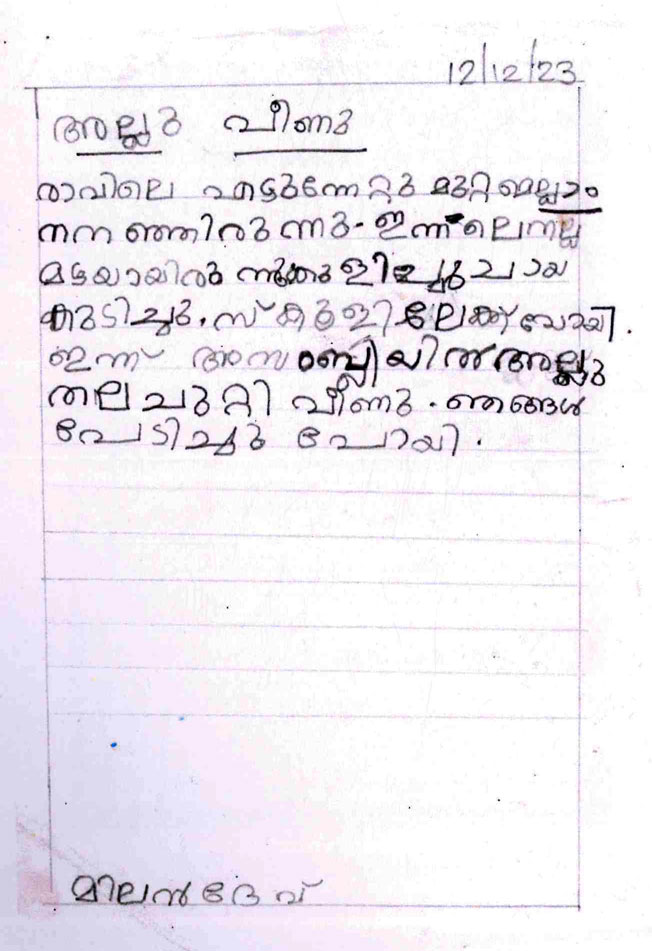 12/12/23
അല്ലു വീണു
രാവിലെ എഴുന്നേറ്റു മുറ്റമെല്ലാം
നനഞ്ഞിരുന്നു. ഇന്നലെ നല്ല
മഴയായിരുന്നു കുളിച്ചു ചായ
കുടിച്ചു. സ്കൂളിലേക്ക് പോയി.
ഇന്ന് അസംബ്ലിയിൽ അല്ലു
തലചുറ്റി വീണു. ഞങ്ങൾ
പേടിച്ചു പോയി.
മിലൻ ദേവ്